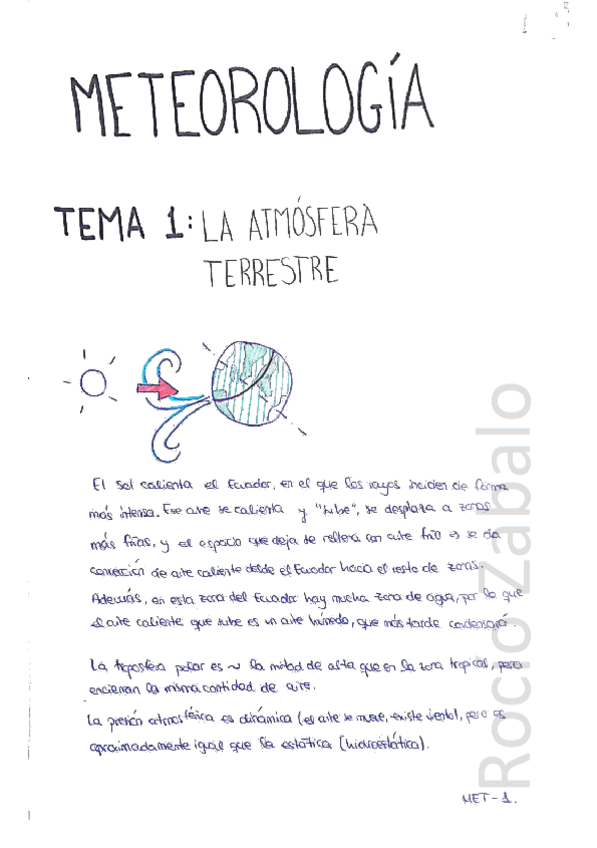 METEOROLOGÍA
TEMA 1: LA ATMÓSFERA
TERRESTRE
El sol calienta el Ecuador, en el que los rayos inciden de forma
más intensa. Ese aire se calienta y "sube", se desplaza a zonas
más frías, y el espacio que deja se rellena con aire frío → se da
convección de aire caliente desde el Ecuador hacia el resto de zonas.
Además, en esta zona del Ecuador hay mucha zona de agua, por lo que
el aire caliente que sube es un aire húmedo, que más tarde condensará.
La troposfera polar es ~ la mitad de alta que en la zona tropical, pero
encierran la misma cantidad de aire.
La presión atmosférica es dinámica (el aire se mueve, existe viento), pero es
aproximadamente igual que la estática (hidrostática).
MET-1.
Rocío Zabalo